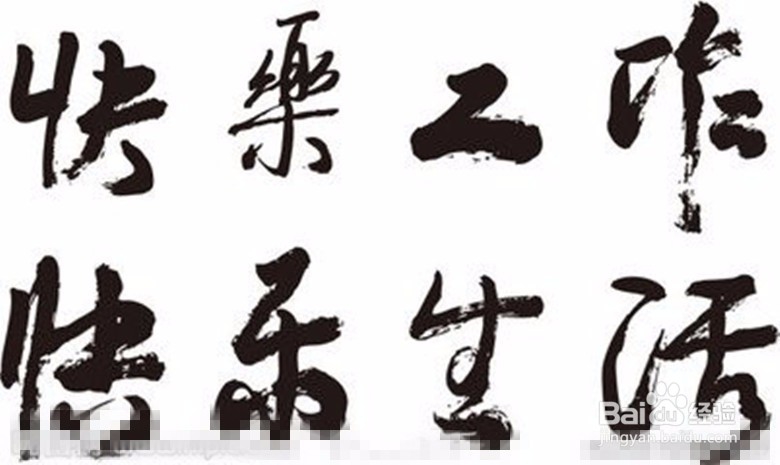 快樂工作
快乐生活
Baidu经验
jingyan.baidu.com